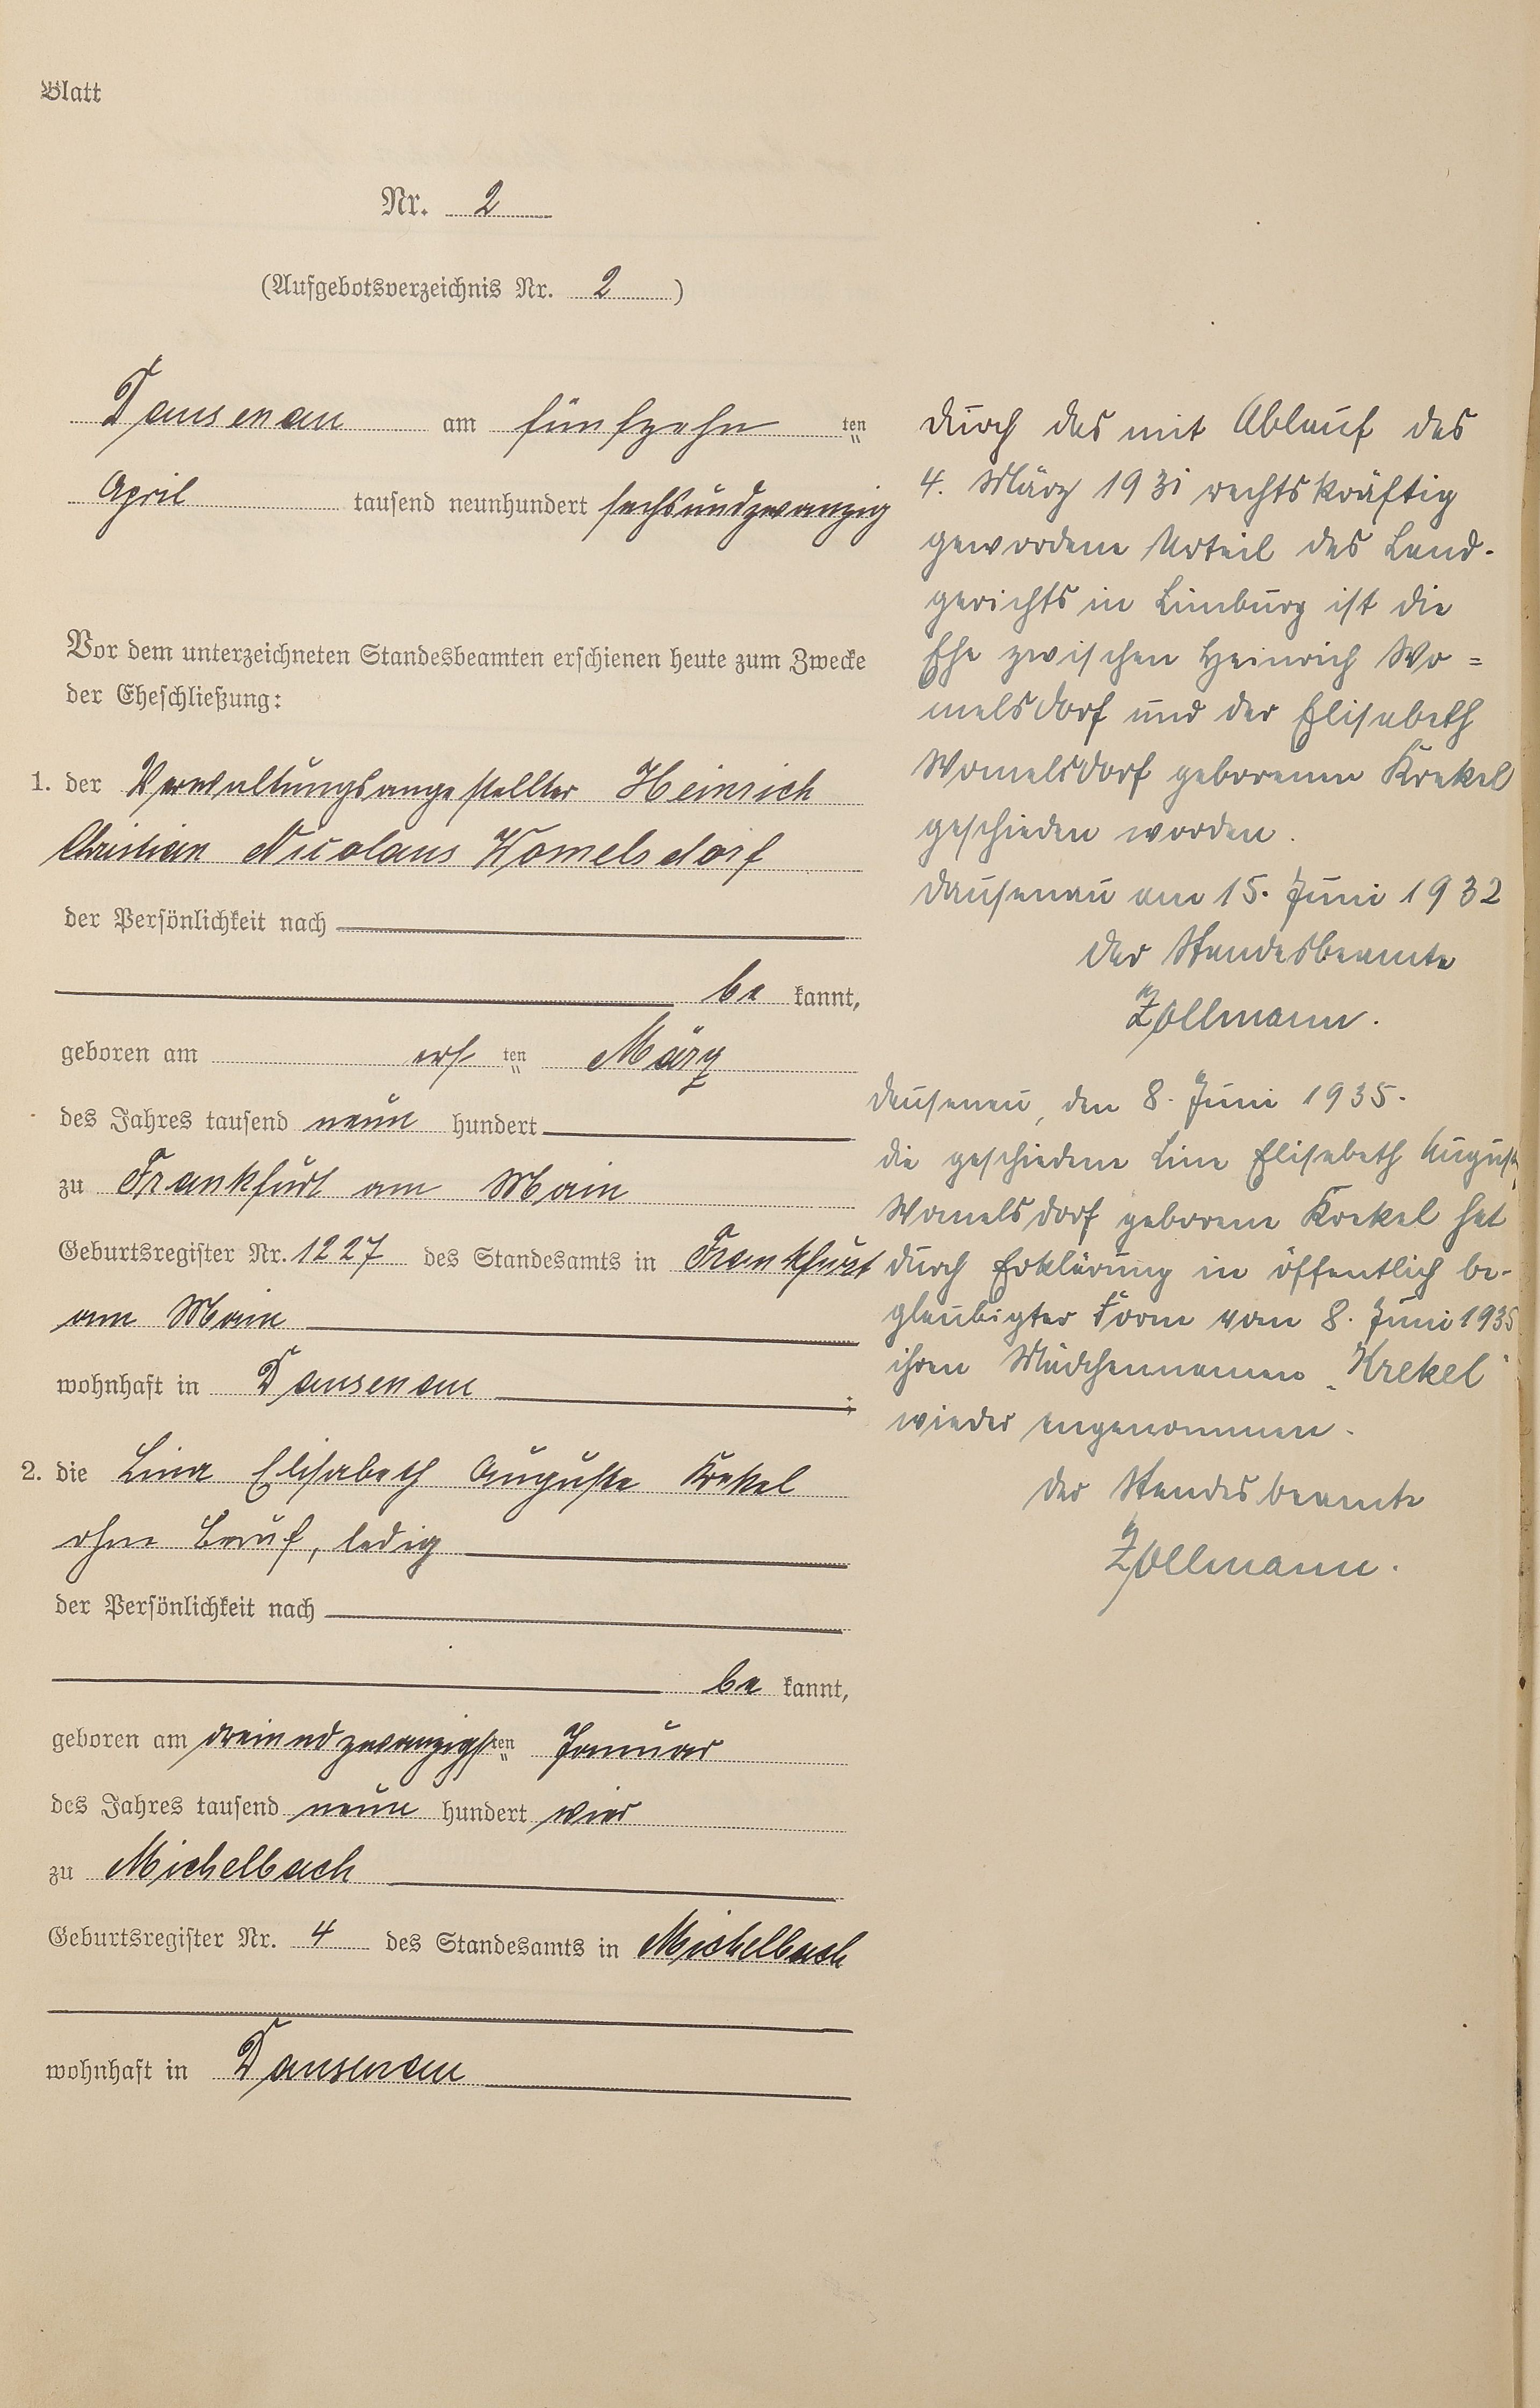 Blatt
Nr. 2
(Aufgebotsverzeichnis Nr. 2)
Dausenau am fünfzehn ten
April tausend neunhundert sechsundzwanzig
Vor dem unterzeichneten Standesbeamten erschienen heute zum Zwecke
der Eheschließung:
1. der Verwaltungsangestellter Heinrich
Christian Nicolaus Womelsdorf
der Persönlichkeit nach
be kannt,
geboren am ers ten März
des Jahres tausend neun hundert
zu Frankfurt am Main
Geburtsregister Nr. 1227 des Standesamts in Frankfurt
am Main
wohnhaft in Dausenau ;
2. die Lina Elisabeth Auguste Krekel
ohne Beruf, ledig
der Persönlichkeit nach
be kannt,
geboren am dreiundzwanzigsten Januar
des Jahres tausend neun hundert vier
zu Michelbach
Geburtsregister Nr. 4 des Standesamts in Michelbach
wohnhaft in Dausenau
Durch das mit Ablauf des
4. März 1931 rechtskräftig
gewordene Urteil des Land-
gerichts in Limburg ist die
Ehe zwischen Heinrich Wo=
melsdorf und der Elisabeth
Womelsdorf geborenen Krekel
geschieden worden.
Dausenau am 15. Juni 1932
Der Standesbeamte
Zollmann.
Dausenau, den 8. Juni 1935.
Die geschiedene Line Elisabeth Auguste
Womelsdorf geborene Krekel hat
durch Erklärung in öffentlich be-
glaubigter Form vom 8. Juni 1935
ihren Mädchennamen „Krekel"
wieder angenommen.
Der Standesbeamte
Zollmann.